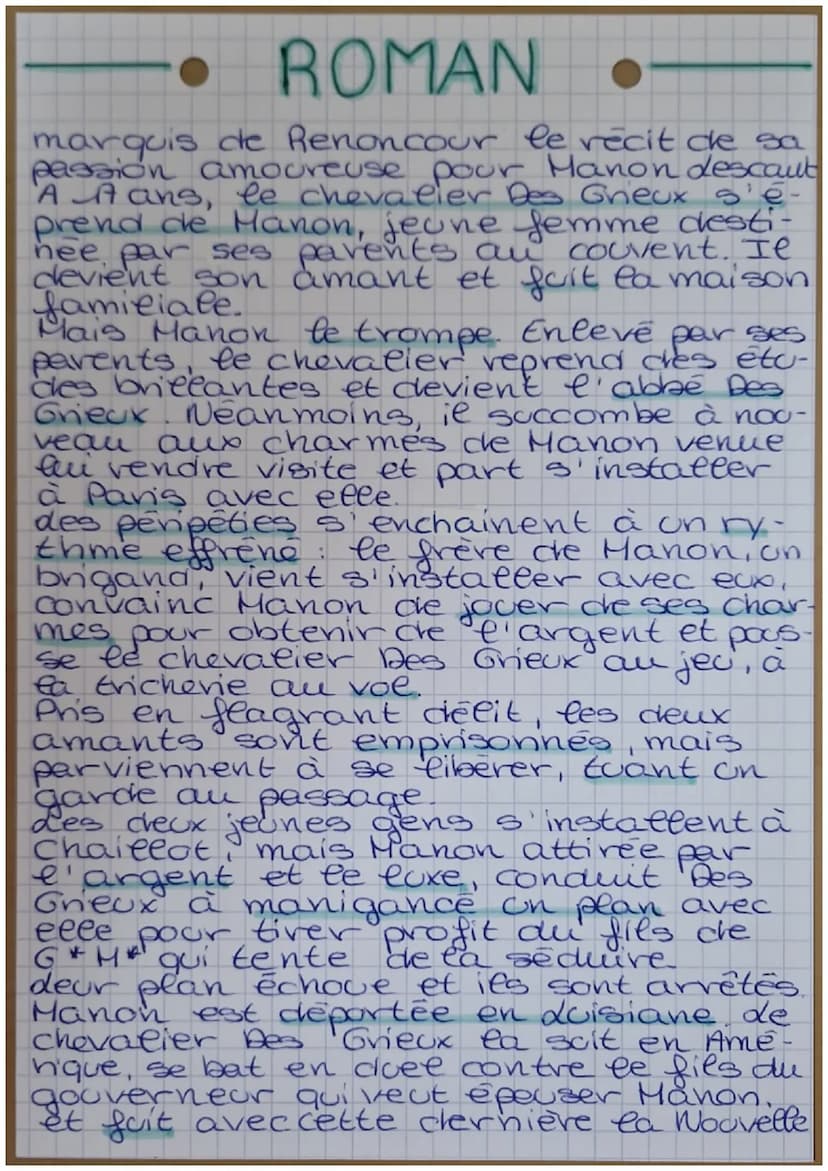 ROMAN
marquis de Renoncour le récit de sa
passion amoureuse pour Manon Lescaut
A 17 ans, le chevalier Des Grieux s'é-
prend de Manon, jeune femme desti-
née par ses parents au couvent. Il
devient son amant et fuit la maison
familiale.
Mais Manon le trompe. Enlevé par ses
parents, le chevalier reprend des étu-
des brillantes et devient l'abbé Des
Grieux. Néanmoins, il succombe à nou-
veau aux charmes de Manon venue
lui rendre visite et part s'installer
à Paris avec elle.
des péripéties s'enchainent à un ry-
thme effréné : le frère de Manon, un
brigand, vient s'installer avec eux,
convainc Manon de jouer de ses char-
mes pour obtenir de l'argent et pous-
se le chevalier Des Grieux au jeu, à
la tricherie au vol.
Pris en flagrant délit, les deux
amants sont emprisonnés, mais
parviennent à se libérer, tuant un
garde au passage.
Les deux jeunes gens s'installent à
Chaillot, mais Manon attirée par
l'argent et le luxe, conduit Des
Grieux à manigancé un plan avec
elle pour tirer profit du fils de
G*M* qui tente de la séduire.
Leur plan échoue et ils sont arrêtés.
Manon est déportée en Louisiane. Le
chevalier Des Grieux la suit en Amé-
rique, se bat en duel contre le fils du
gouverneur qui veut épouser Manon.
et fuit avec cette dernière la Nouvelle